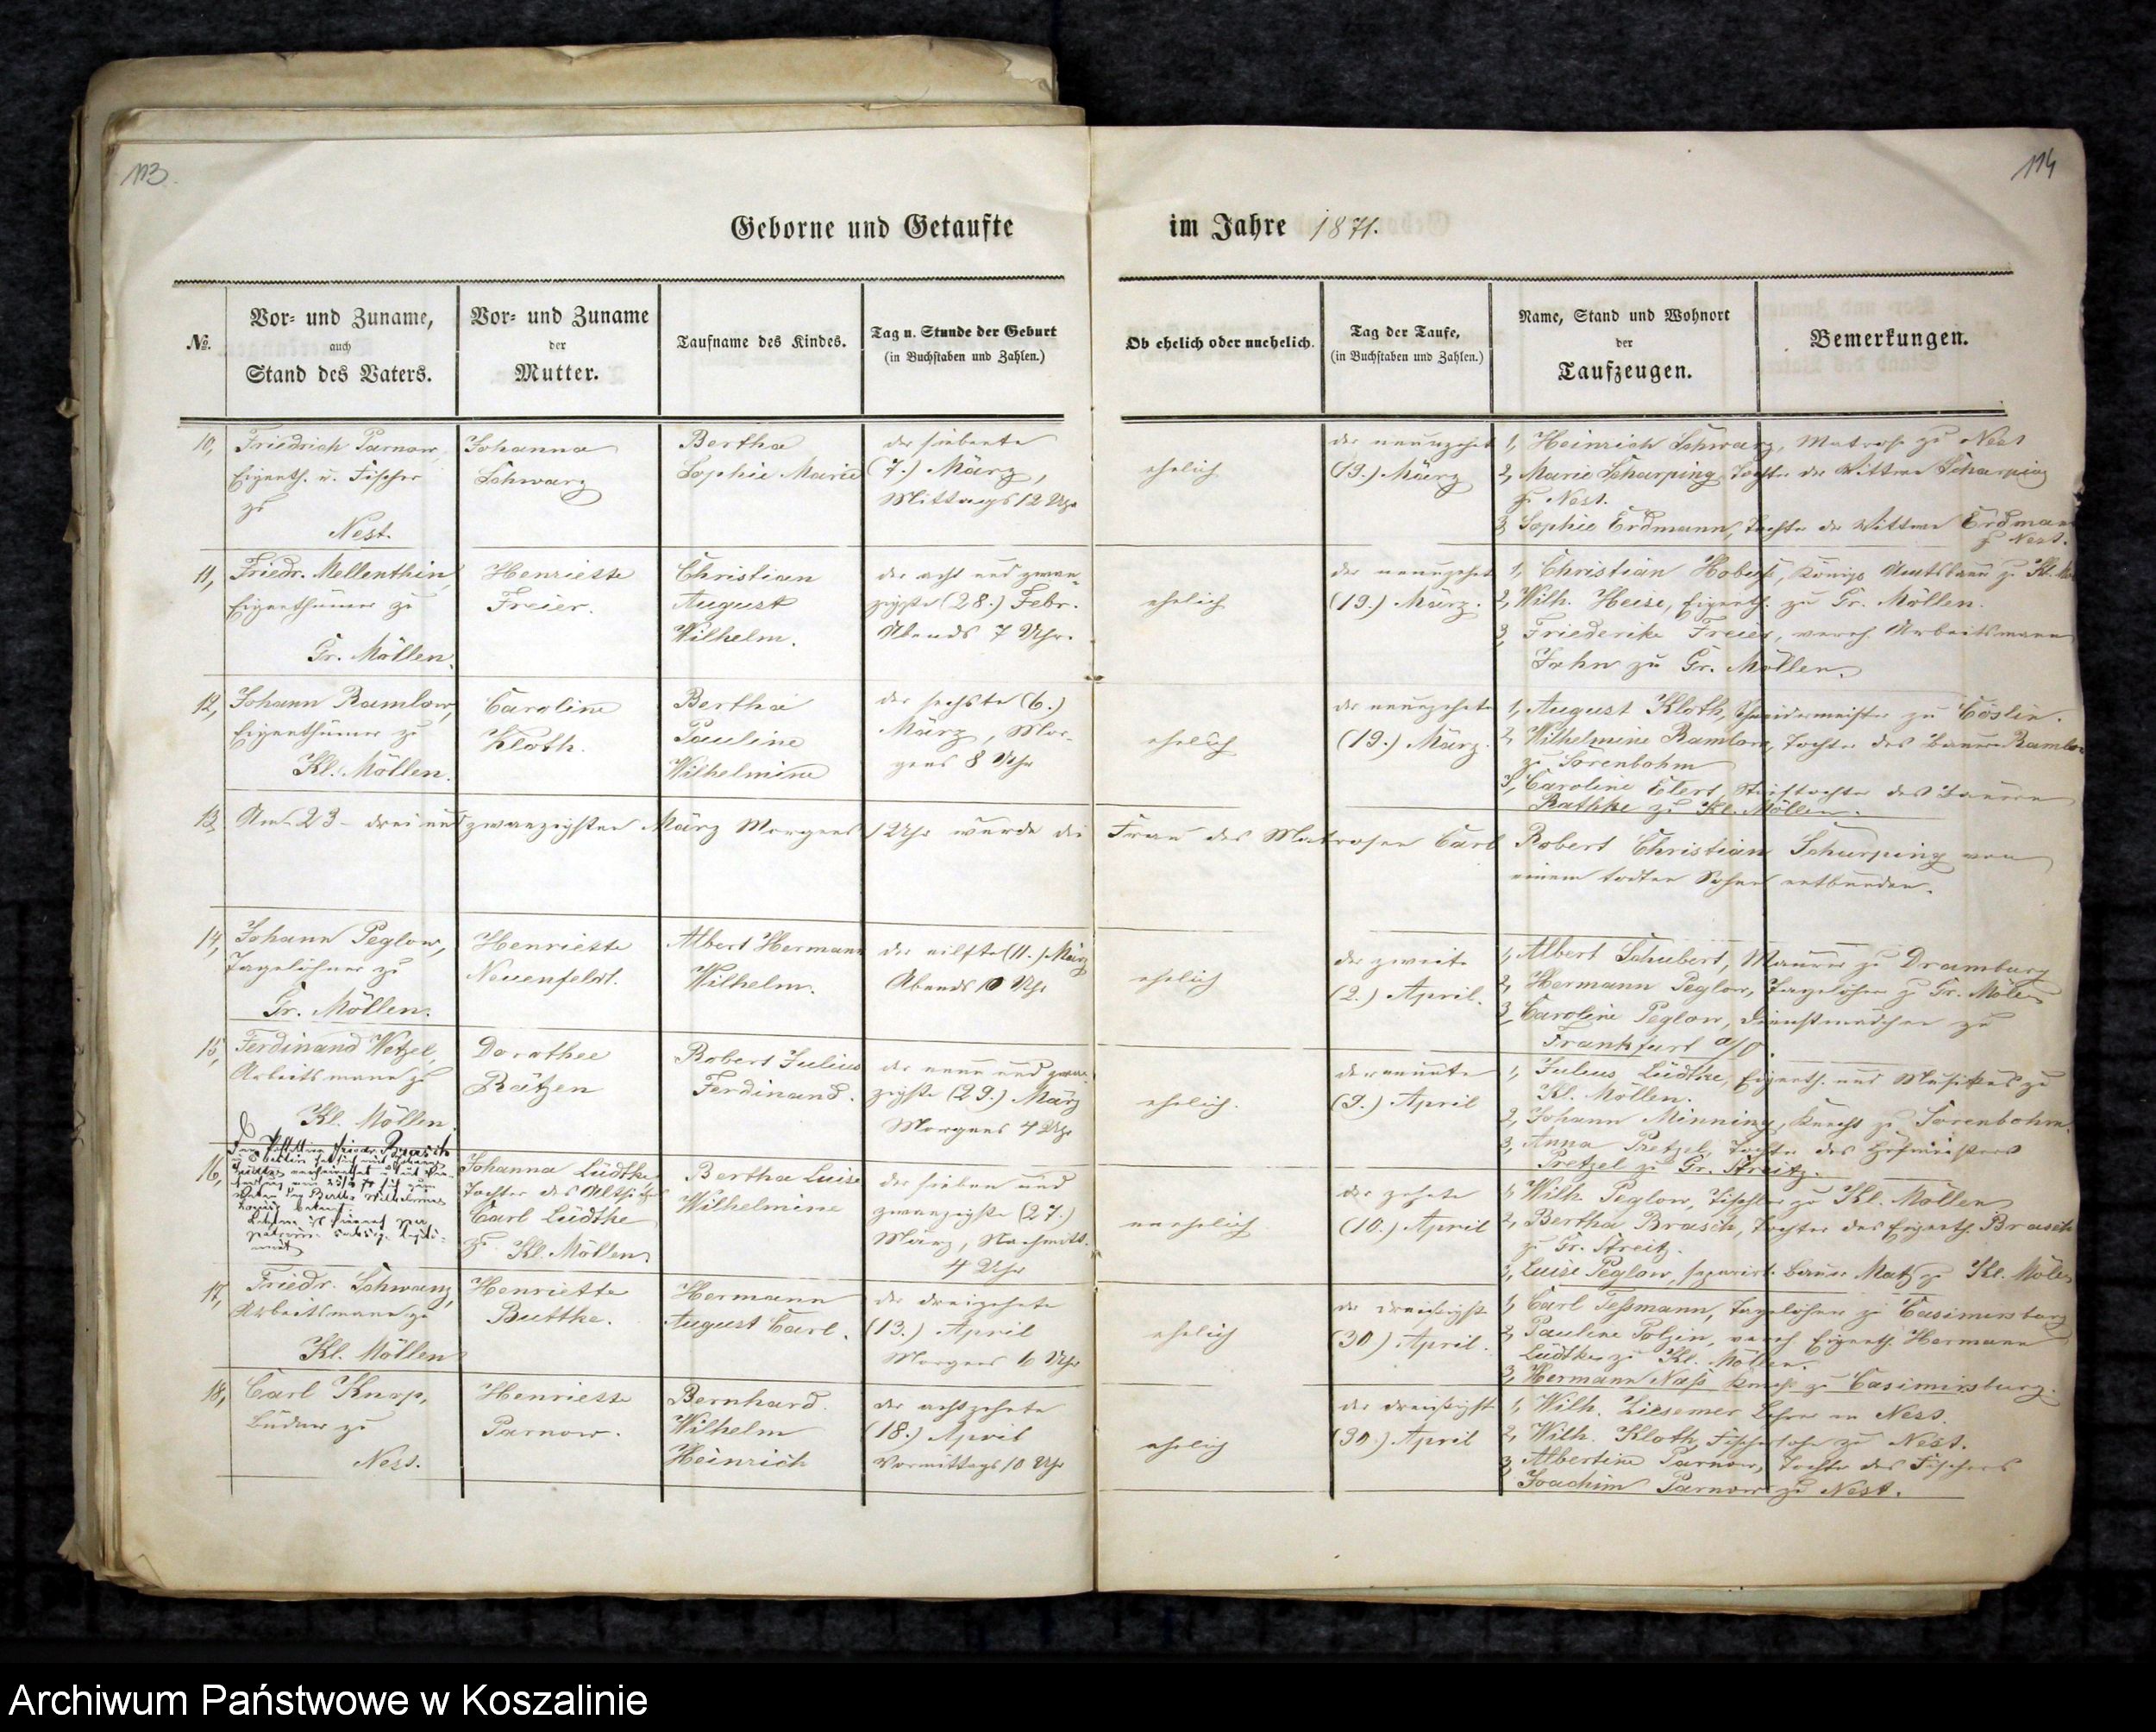 113.
114
Geborne und Getaufte
im Jahre 1871.
No.
Vor- und Zuname,
auch
Stand des Vaters.
Vor- und Zuname
der
Mutter.
Taufname des Kindes.
Tag u. Stunde der Geburt
(in Buchstaben und Zahlen.)
Ob ehelich oder unehelich.
Tag der Taufe,
(in Buchstaben und Zahlen.)
Name, Stand und Wohnort
der
Taufzeugen.
Bemerkungen.
10,
Friedrich Parnow,
Eigenth. u. Fischer
zu
Nest.
Johanna
Schwarz
Bertha
Sophie Marie
der siebente
(7.) März,
Mittags 12 Uhr
ehelich
der neunzehnte
(19.) März
1, Heinrich Schwarz, Matrose zu Nest
2, Marie Scharping, Tochter der Wittwe Scharping
zu Nest.
3, Sophie Erdmann, Tochter der Wittwe Erdmann
zu Nest.
11,
Friedr. Mellenthin,
Eigenthümer zu
Gr. Möllen.
Henriette
Freier.
Christian
August
Wilhelm.
der acht und zwan-
zigste (28.) Febr.
Abends 7 Uhr.
ehelich
der neunzehnte
(19.) März.
1, Christian zu Kl.
2, Wilh. Heise, Eigenth. zu Gr. Möllen.
3, Friederike Freier, vereh. Arbeitsmann
Jahn zu Gr. Möllen.
12,
Johann Ramlow,
Eigenthümer zu
Kl. Möllen.
Caroline
Kloth.
Bertha
Pauline
Wilhelmine
der sechste (6.)
März, Mor-
gens 8 Uhr
ehelich
der neunzehnte
(19.) März.
1, August Kloth, Schneidermeister zu Cöslin.
2, Wilhelmine Ramlow, Tochter des Bauern Ramlow
zu Sorenbohm
3, Caroline Elert, Stieftochter des Bauern
Rathke zu Kl. Möllen.
13,
Am 23 - drei und zwanzigsten März Morgens 1 Uhr wurde die Frau des Matrosen Carl Robert Christian Scharping von
einem todten Sohne entbunden.
14,
Johann Peglow,
Tagelöhner zu
Gr. Möllen.
Henriette
Neuenfeldt.
Albert Hermann
Wilhelm.
der eilfte (11.) März
Abends 10 Uhr
ehelich
der zweite
(2.) April.
1, Albert Schubert, Maurer zu Dramburg
2, Hermann Peglow, Tagelöhner zu Gr. Möllen
3, Caroline Peglow, Dienstmädchen zu
Frankfurt a/O.
15,
Ferdinand Wetzel,
Arbeitsmann zu
Kl. Möllen
Dorothee
Rätzen
Robert Julius
Ferdinand.
der neun und zwan-
zigste (29.) März
Morgens 4 Uhr
ehelich.
der neunte
(9.) April
1, Julius Lüdtke, Eigenth. und Musikus zu
Kl. Möllen.
2, Johann Minning, Knecht zu Sorenbohm.
3, Anna Pretzel, Tochter des Hofmeisters
Pretzel zu Gr. Streitz.
16,
Johanna Lüdtke
Tochter des Altsitzers
Carl Lüdtke
zu Kl. Möllen
Bertha Luise
Wilhelmine
der sieben und
zwanzigste (27.)
März, Nachmitt.
4 Uhr
unehelich.
der zehnte
(10.) April
1, Wilh. Peglow, Tischler zu Kl. Möllen
2, Bertha Brasch, Tochter des Eigenth. Brasch
zu Gr. Streitz.
3, Luise Peglow, separirt. Bauer Matz zu Kl. Möllen
17,
Friedr. Schwanz,
Arbeitsmann zu
Kl. Möllen
Henriette
Buttke.
Hermann
August Carl.
der dreizehnte
(13.) April
Morgens 6 Uhr
ehelich
der dreißigste
(30.) April.
1, Carl Teßmann, Tagelöhner zu Casimirsburg
2, Pauline Polzin, vereh. Eigenth. Hermann
Lüdtke zu Kl. Möllen.
3, Hermann Naß Knecht zu Casimirsburg.
18,
Carl Knop,
Büdner zu
Nest.
Henriette
Parnow.
Bernhard
Wilhelm
Heinrich
der achtzehnte
(18.) April
Vormittags 10 Uhr
ehelich
der dreißigste
(30.) April
1, Wilh. Ziesemer Lehrer in Nest.
2, Wilh. Kloth, Fischersohn zu Nest.
3, Albertine Parnow, Tochter des Fischers
Joachim Parnow zu Nest.
Archiwum Państwowe w Koszalinie